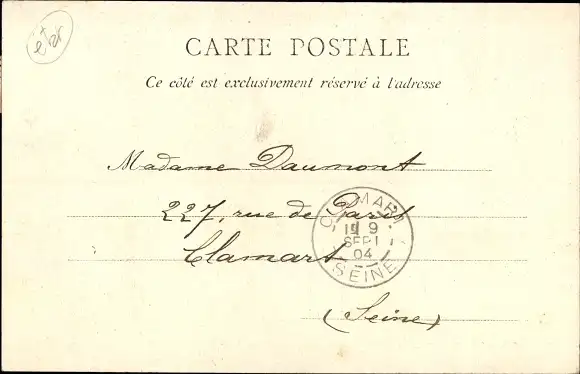 CARTE POSTALE
Ce côté est exclusivement réservé à l'adresse
Madame Daumont
227, rue de Paris
Clamart
(Seine)
CLAMART
9
SEPT
04
SEINE